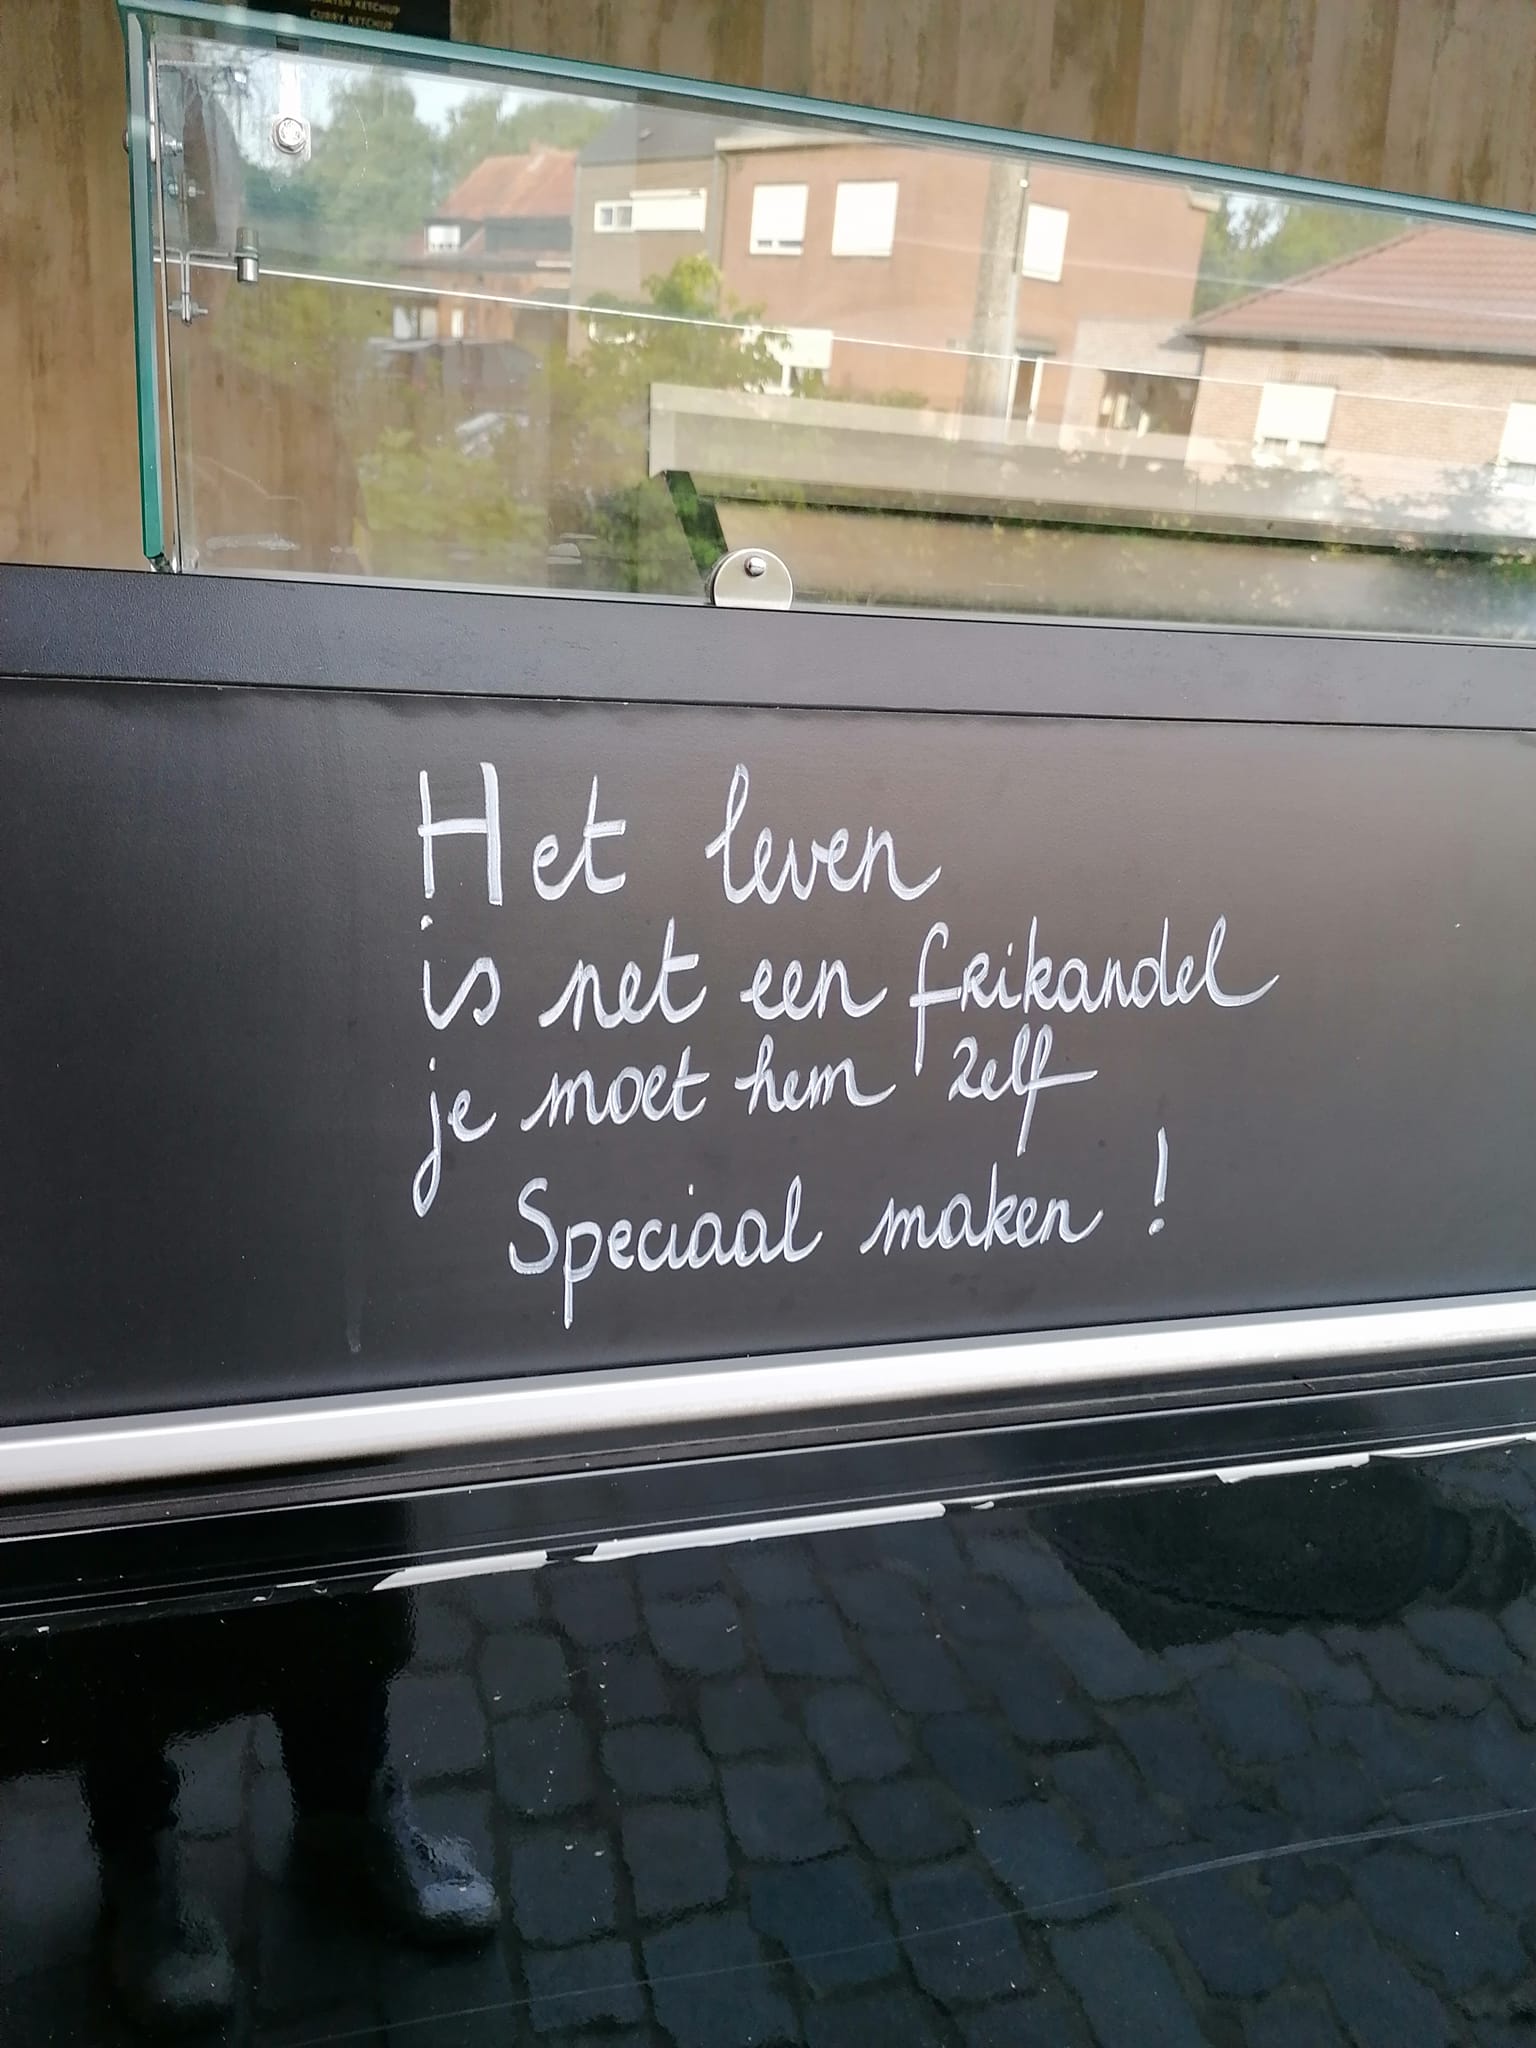 KETCHUP
CURRY KETCHUP
Het leven
is net een frikandel
je moet hem zelf
Speciaal maken !